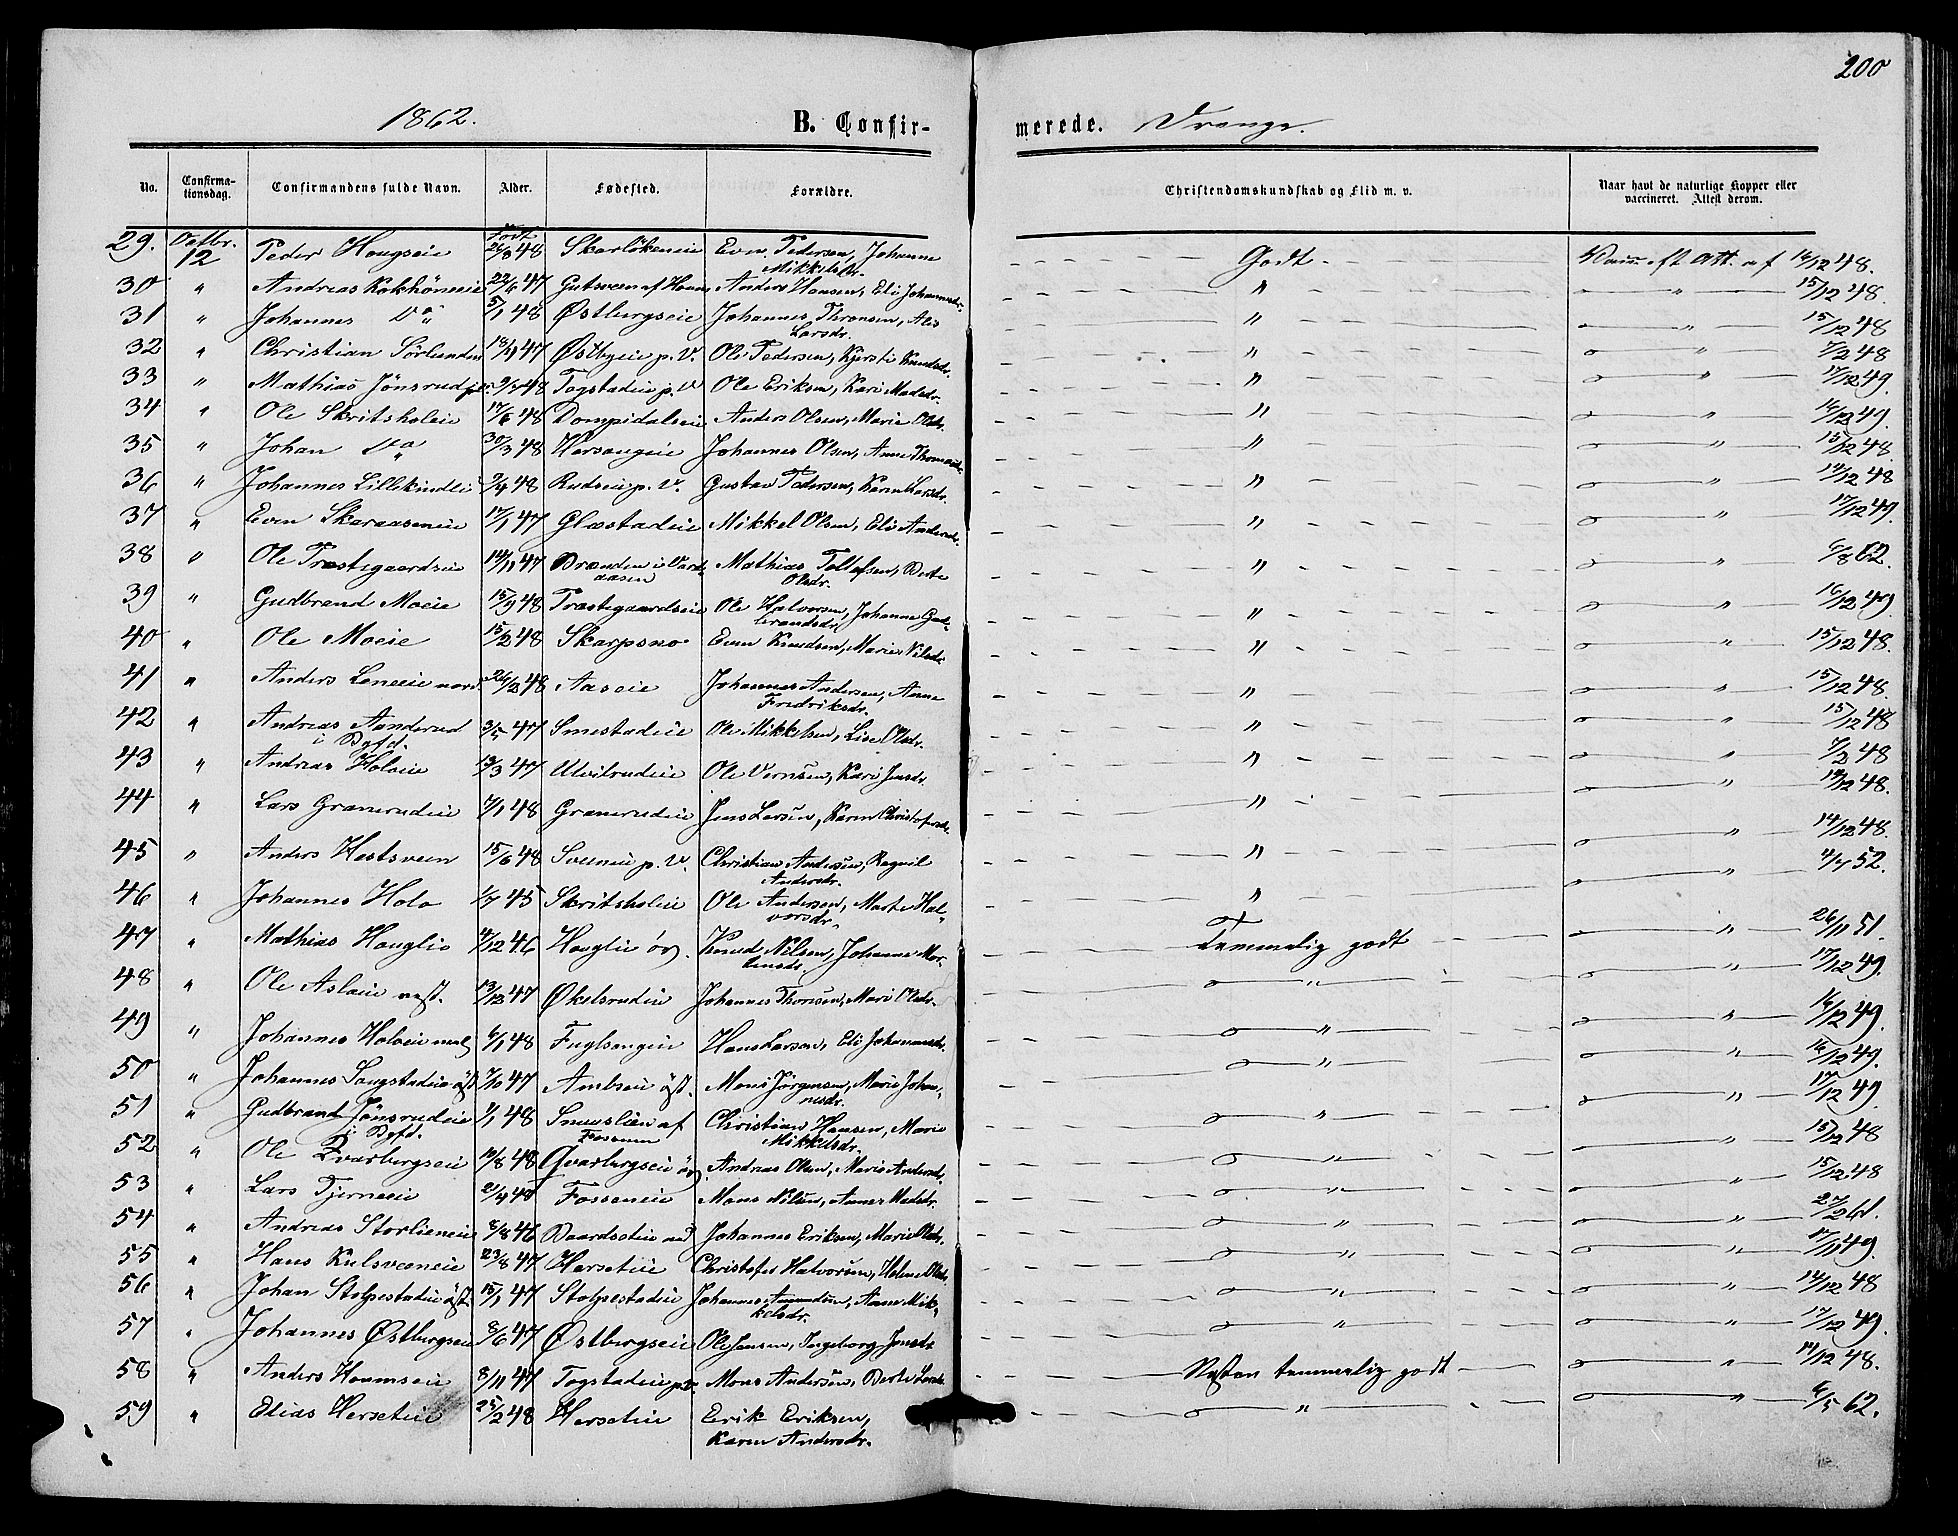 200
1862. B. Confir- merede. Drenge.
No. Confirma-tionsdag. Confirmandens fulde Navn. Alder. Fødested. Forældre. Christendomskundskab og Flid m. v. Naar havt de naturlige Kopper eller vaccineret. Attest derom.
29. Octbr. 12 Peder Hougseie Født 26/8 48 Skarlökeneie Even Pedersen, Johanne Mikkelsdr. Godt. Vacc. eft Att. af 16/12 48.
30 " Andreas Kokhöneeie 22/6 47 Gutsveen af Houm Anders Hansen, Eli Johannesdr. " " 15/12 48.
31 " Johannes Do 5/1 48 Østbergseie Johannes Thronsen, Alis Larsdr. " " 15/12 48
32 " Christian Sörlunden 18/11 47 Østbyeie p. V. Ole Pedersen, Kjersti Knudsdr. " " 7/2 48
33 " Mathias Jönsrud 9/5 48 Togstadeie p. V Ole Eriksen, Kari Madsdr. " " 17/12 49.
34 " Ole Skritsholeie 17/6 48 Dompidalseie Anders Olsen, Marie Olsdr. " " 14/12 49.
35 " Johan Do 30/3 48 Horsangeie Johannes Olsen, Anne Thomasdr. " " 15/12 48.
36 " Johannes Lillekindli 9/4 48 Rudseie p. V. Gustav Pedersen, Karen Larsdr. " " 14/12 48
37 " Even Skaraaseneie 17/1 47 Glæstadeie Mikkel Olsen, Eli Andersdr. " " 17/12 49.
38 " Ole Træstegaardseie 14/11 47 Brænden i Vardaasen Mathias Tollefsen, Berte Olsdr. " " 6/8 62.
39 " Gudbrand Moeie 15/9 48 Træstegaardseie Ole Halvorsen, Johanne Gudbrandsdr. " " 16/12 49.
40 " Ole Moeie 15/2 48 Skarpsno Even Knudsen, Marie Nilsdr. " " 15/12 48.
41 " Anders Leneeie nord. 26/2 48 Aaseie Johannes Andersen, Anne Fredriksdr. " " 15/12 48.
42 " Andreas Aanderud i Bygd. 3/5 47 Smestadeie Ole Mikkelsen, Lise Olsdr. " " 15/12 48
43 " Andreas Holoeie 13/3 47 Ulvilrudeie Ole Vernsen, Kari Jensdr " " 7/2 48
44 " Lars Granerudeie 7/1 48 Granerudeie Jens Larsen, Karen Christofersdr. " " 14/12 48.
45 " Anders Hestsveen 15/6 48 Sveeneie p. V. Christian Andersen, Ragnil Andersdr. " " 14/12 48.
46 " Johannes Holo 1/7 45 Skritsholeie Ole Andersen, Marte Halvorsdr. " " 4/7 52.
47 " Mathias Houglie 4/12 46 Houglie öv. Knud Nilsen, Johanne Mortensdr. Temmelig godt " 26/11 51.
48 " Ole Asloeie vest. 13/12 47 Økelsrudeie Johannes Thoresen, Mari Olsdr. " " 17/12 49.
49 " Johannes Holoeie 6/1 48 Fuglsangeie Hans Larsen, Eli Johannesdr. " " 16/12 49.
50 " Johannes Sougstadeie öst 7/10 47 Ambseie öst. Mons Jörgensen, Marie Johannesdr. " " 16/12 49.
51 " Gudbrand Jönsrudeie i Bygd. 1/1 48 Smuslien af Fossum Christian Hansen, Marie Mikkelsdr. " " 17/12 49
52 " Ole Qvarbergseie 10/8 48 Qvarbergseie öv. Andreas Olsen, Marie Andersdr. " " 15/12 48
53 " Lars Tjerneeie 21/4 48 Fosseneie Mons Nilsen, Anne Madsdr. " " 15/12 48
54 " Andreas Storlieneie 8/8 46 Baardseteie Johannes Eriksen, Marie Olsdr. " " 27/2 61.
55 " Hans Kulsveeneie 23/8 47 Herseteie Christofer Halvorsen, Helene Olsdr. " " 17/11 49.
56 " Johan Stolpestadeie öst. 15/1 47 Stolpestadeie Johannes Amundsen, Anne Mikkelsdr. " " 14/12 48
57 " Johannes Østbergseie 8/6 47 Østbergseie Ole Jensen, Ingeborg Jonsdr " " 17/12 49.
58 " Anders Houmseie 8/11 47 Togstadeie p. V. Mons Andersen, Berte Larsdr. Næsten temmelig godt " 14/12 48.
59 " Elias Herseteie 25/2 48 Herseteie Erik Eriksen, Karen Andersdr. " " 6/5 62.